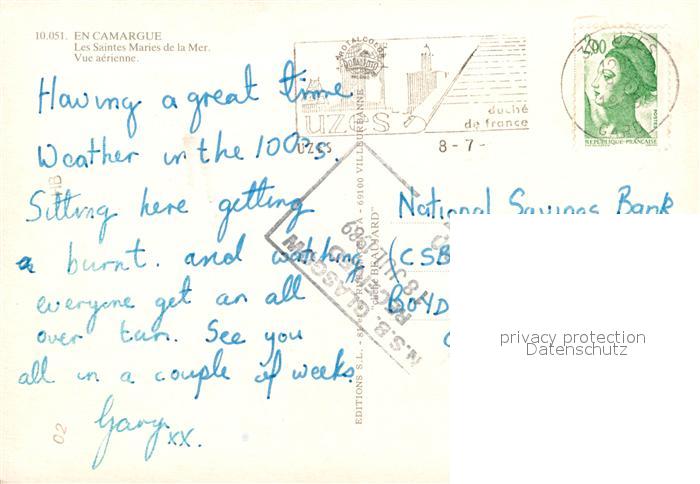 10.051. EN CAMARGUE
Les Saintes Maries de la Mer.
Vue aérienne.
uzès
duché
de france
UZES
8-7-
2,00
POSTES
REPUBLIQUE FRANÇAISE
UZES
GARD
Having a great time
Weather in the 100's.
Sitting here getting
a burnt. and watching
everyone get an all
over tan. See you
all in a couple of weeks.
Gary
xx.
02
EDITIONS S.L. -
69100 VILLEURBANNE
"cliché BEAUMARD"
N.S.B. GLASGOW
RECEIVED
18 JUL 1989
National Savings Bank
(CSB
BOYD
privacy protection
Datenschutz